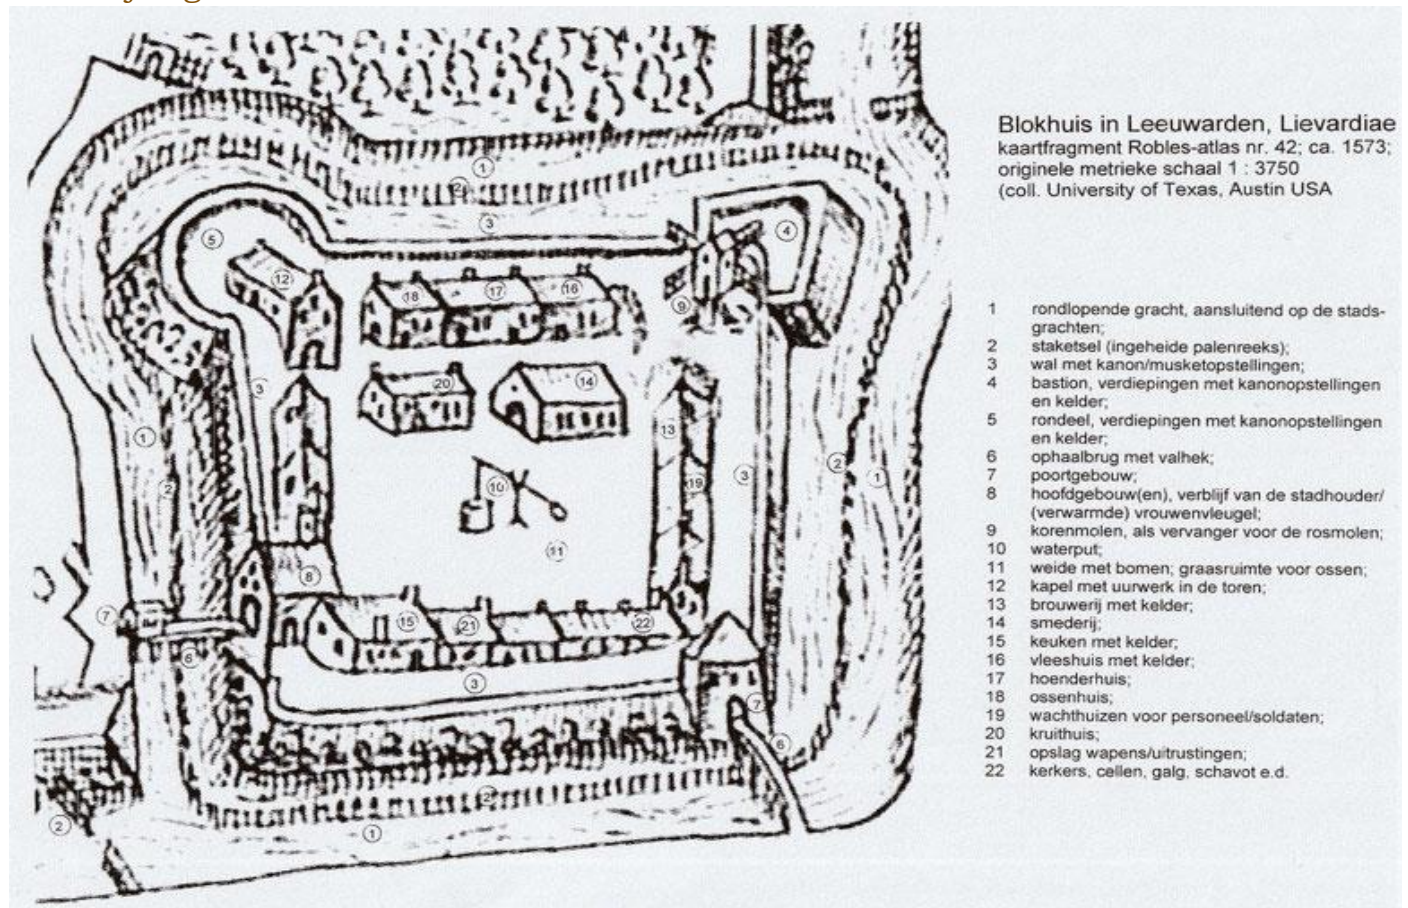 Blokhuis in Leeuwarden, Lievardiae
kaartfragment Robles-atlas nr. 42; ca. 1573;
originele metrieke schaal 1 : 3750
(coll. University of Texas, Austin USA
1 rondlopende gracht, aansluitend op de stads-
grachten;
2 staketsel (ingeheide palenreeks);
3 wal met kanon/musketopstellingen;
4 bastion, verdiepingen met kanonopstellingen
en kelder;
5 rondeel, verdiepingen met kanonopstellingen
en kelder;
6 ophaalbrug met valhek;
7 poortgebouw;
8 hoofdgebouw(en), verblijf van de stadhouder/
(verwarmde) vrouwenvleugel;
9 korenmolen, als vervanger voor de rosmolen;
10 waterput;
11 weide met bomen; graasruimte voor ossen;
12 kapel met uurwerk in de toren;
13 brouwerij met kelder;
14 smederij;
15 keuken met kelder;
16 vleeshuis met kelder;
17 hoenderhuis;
18 ossenhuis;
19 wachthuizen voor personeel/soldaten;
20 kruithuis;
21 opslag wapens/uitrustingen;
22 kerkers, cellen, galg, schavot e.d.
1
2
3
4
5
12
18
17
16
9
3
20
14
1
13
2
10
19
3
2
1
11
8
7
15
21
22
6
3
7
6
2
2
1